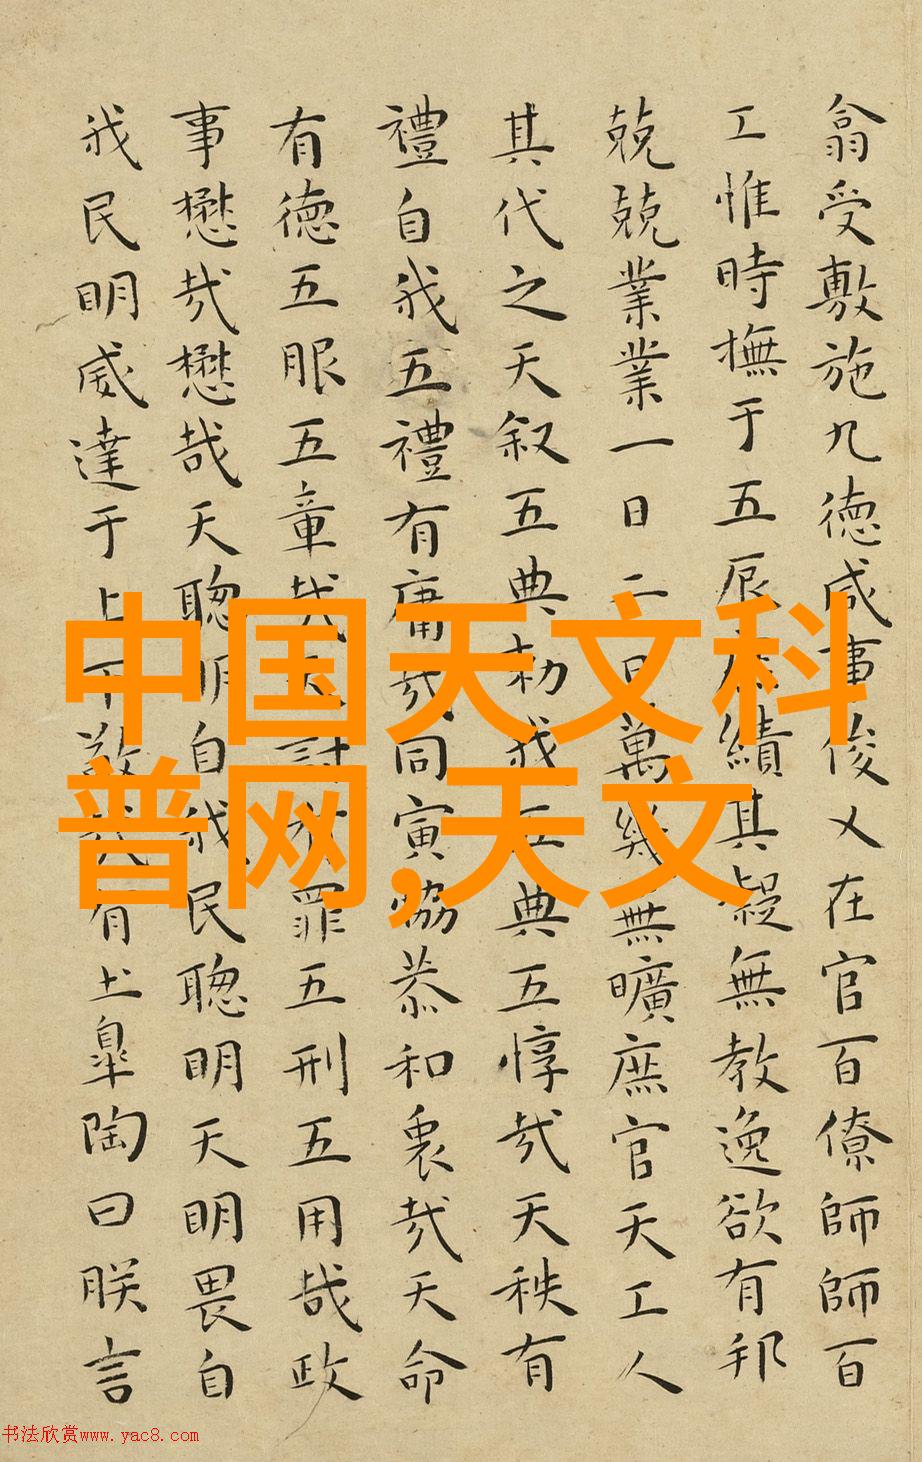 翕受敷施九德咸事俊乂在官百僚師師百
工惟時撫于五辰庶績其凝無教逸欲有邦
兢兢業業一日二日萬幾無曠庶官天工人
其代之天叙五典勑我五典五惇哉天秩有
禮自我五禮有庸哉同寅協恭和衷哉天命
有德五服五章哉天討有罪五刑五用哉政
事懋哉懋哉天聰明自我民聰明天明畏自
我民明威達于上下敬哉有土皋陶曰朕言
中国天文科
普网,天文
书法欣赏www.yac8.com